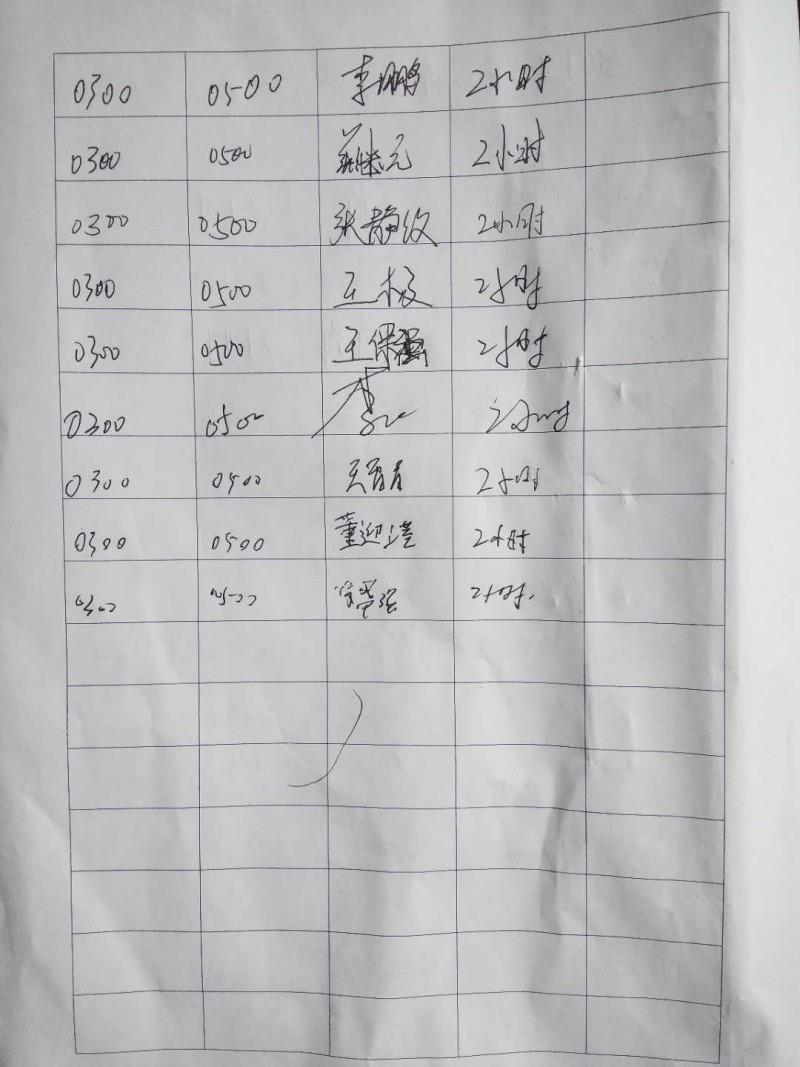 0300 0500 李鹏 2小时
0300 0500 2小时
0300 0500 张静纹 2小时
0300 0500 王极 2小时
0300 0500 王保强 2小时
0300 0500 李 2小时
0300 0500 2小时
0300 0500 董迎 2小时
0300 0500 2小时.